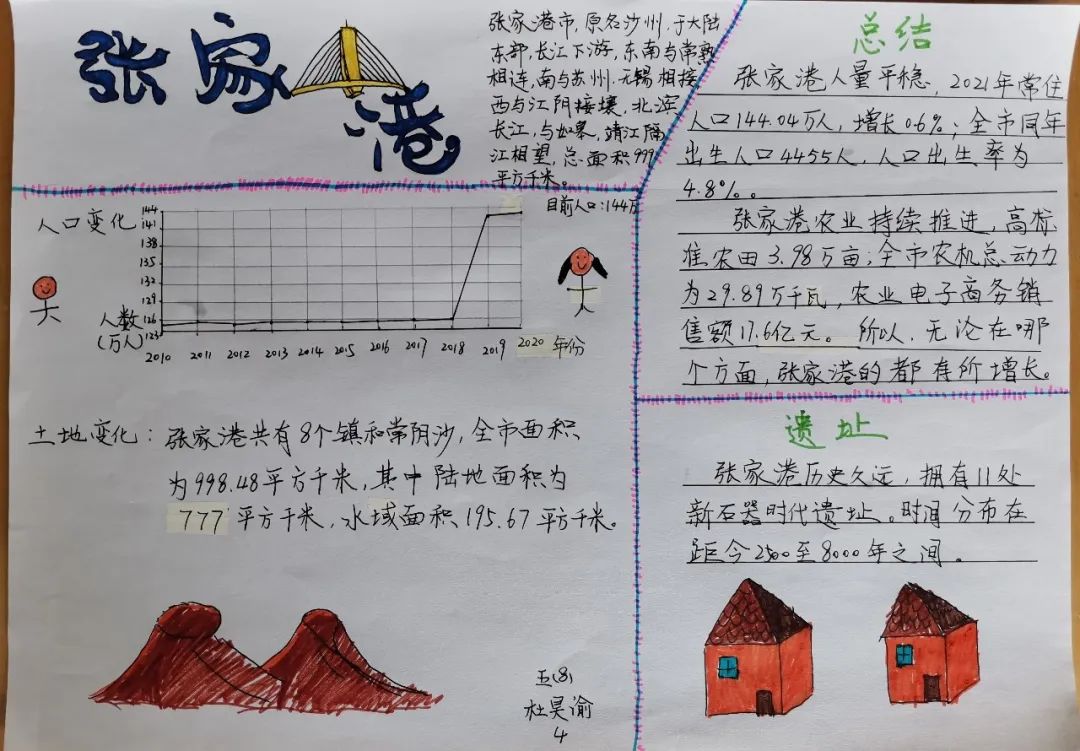 张家港
张家港市,原名沙洲,于大陆
东部,长江下游,东南与常熟
相连,南与苏州.无锡相接
西与江阴接壤,北滨
长江,与如皋,靖江隔
江相望,总面积999
平方千米。
目前人口:144万
人口变化
144
141
138
135
132
129
126
123
人数
(万人)
2010 2011 2012 2013 2014 2015 2016 2017 2018 2019 2020 年份
土地变化:张家港共有8个镇和常阴沙,全市面积
为998.48平方千米,其中陆地面积为
777平方千米,水域面积195.67平方千米。
五(8)
杜昊谕
4
总结
张家港人量平稳,2021年常住
人口144.04万人,增长0.6%;全市同年
出生人口4455人,人口出生率为
4.8%。
张家港农业持续推进,高标
准农田3.98万亩;全市农机总动力
为29.89万千瓦,农业电子商务销
售额17.6亿元。所以,无论在哪
个方面,张家港的都有所增长。
遗址
张家港历史久远,拥有11处
新石器时代遗址。时间分布在
距今2500至8000年之间。